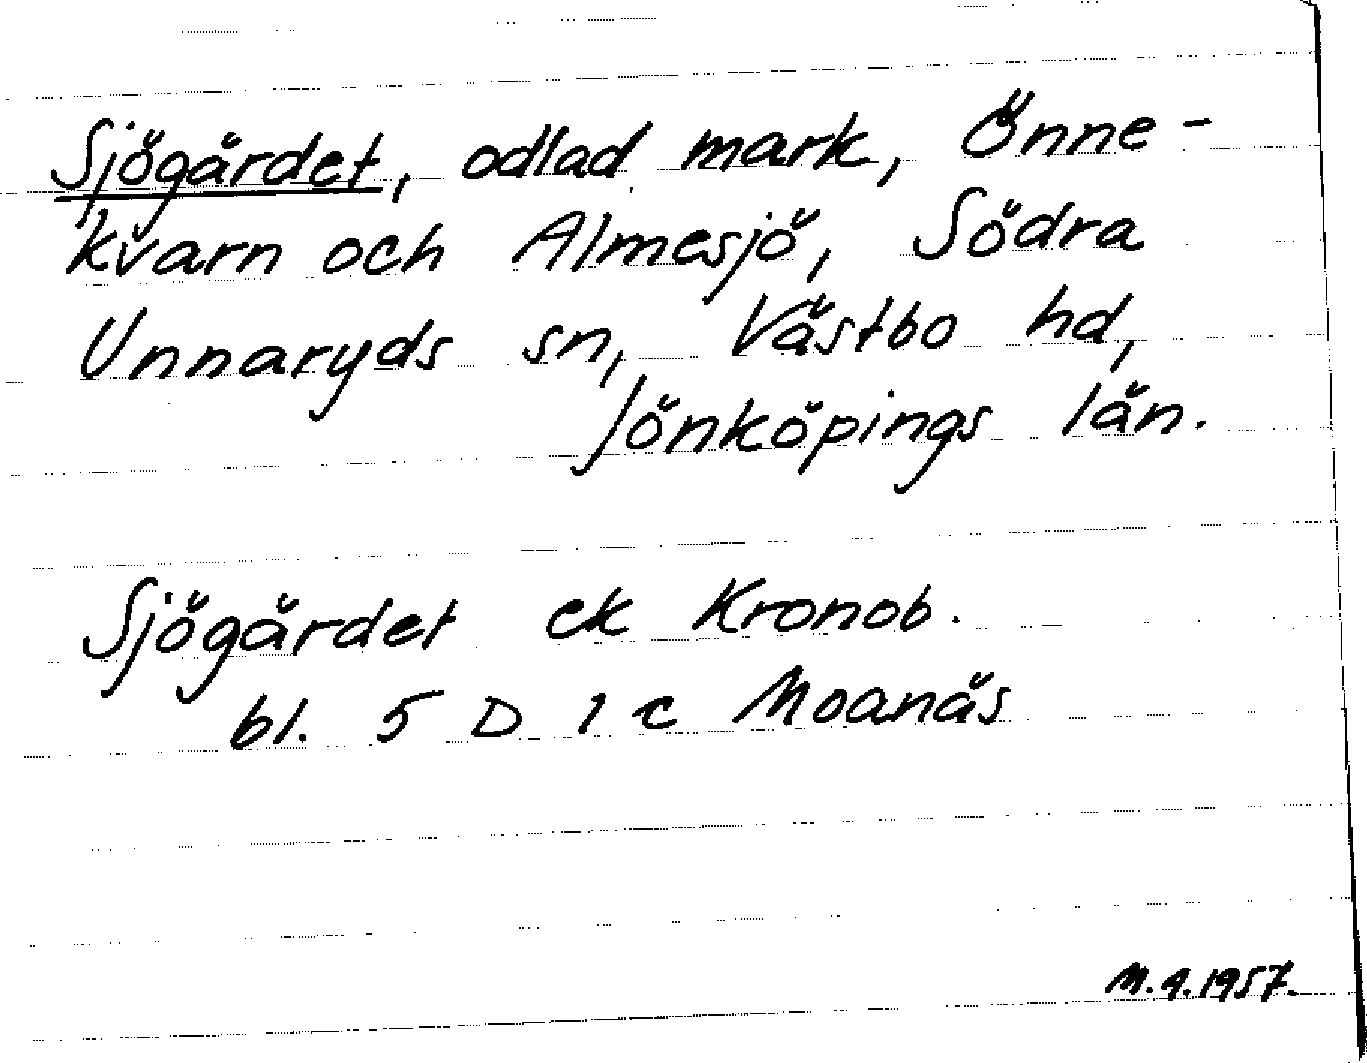 Sjögärdet, odlad mark, Önne-
kvarn och Almesjö, Södra
Unnaryds sn, Västbo hd,
Jönköpings län.
Sjögärdet ek Kronob.
bl. 5 D 1 c Moanäs
M.A.1957.